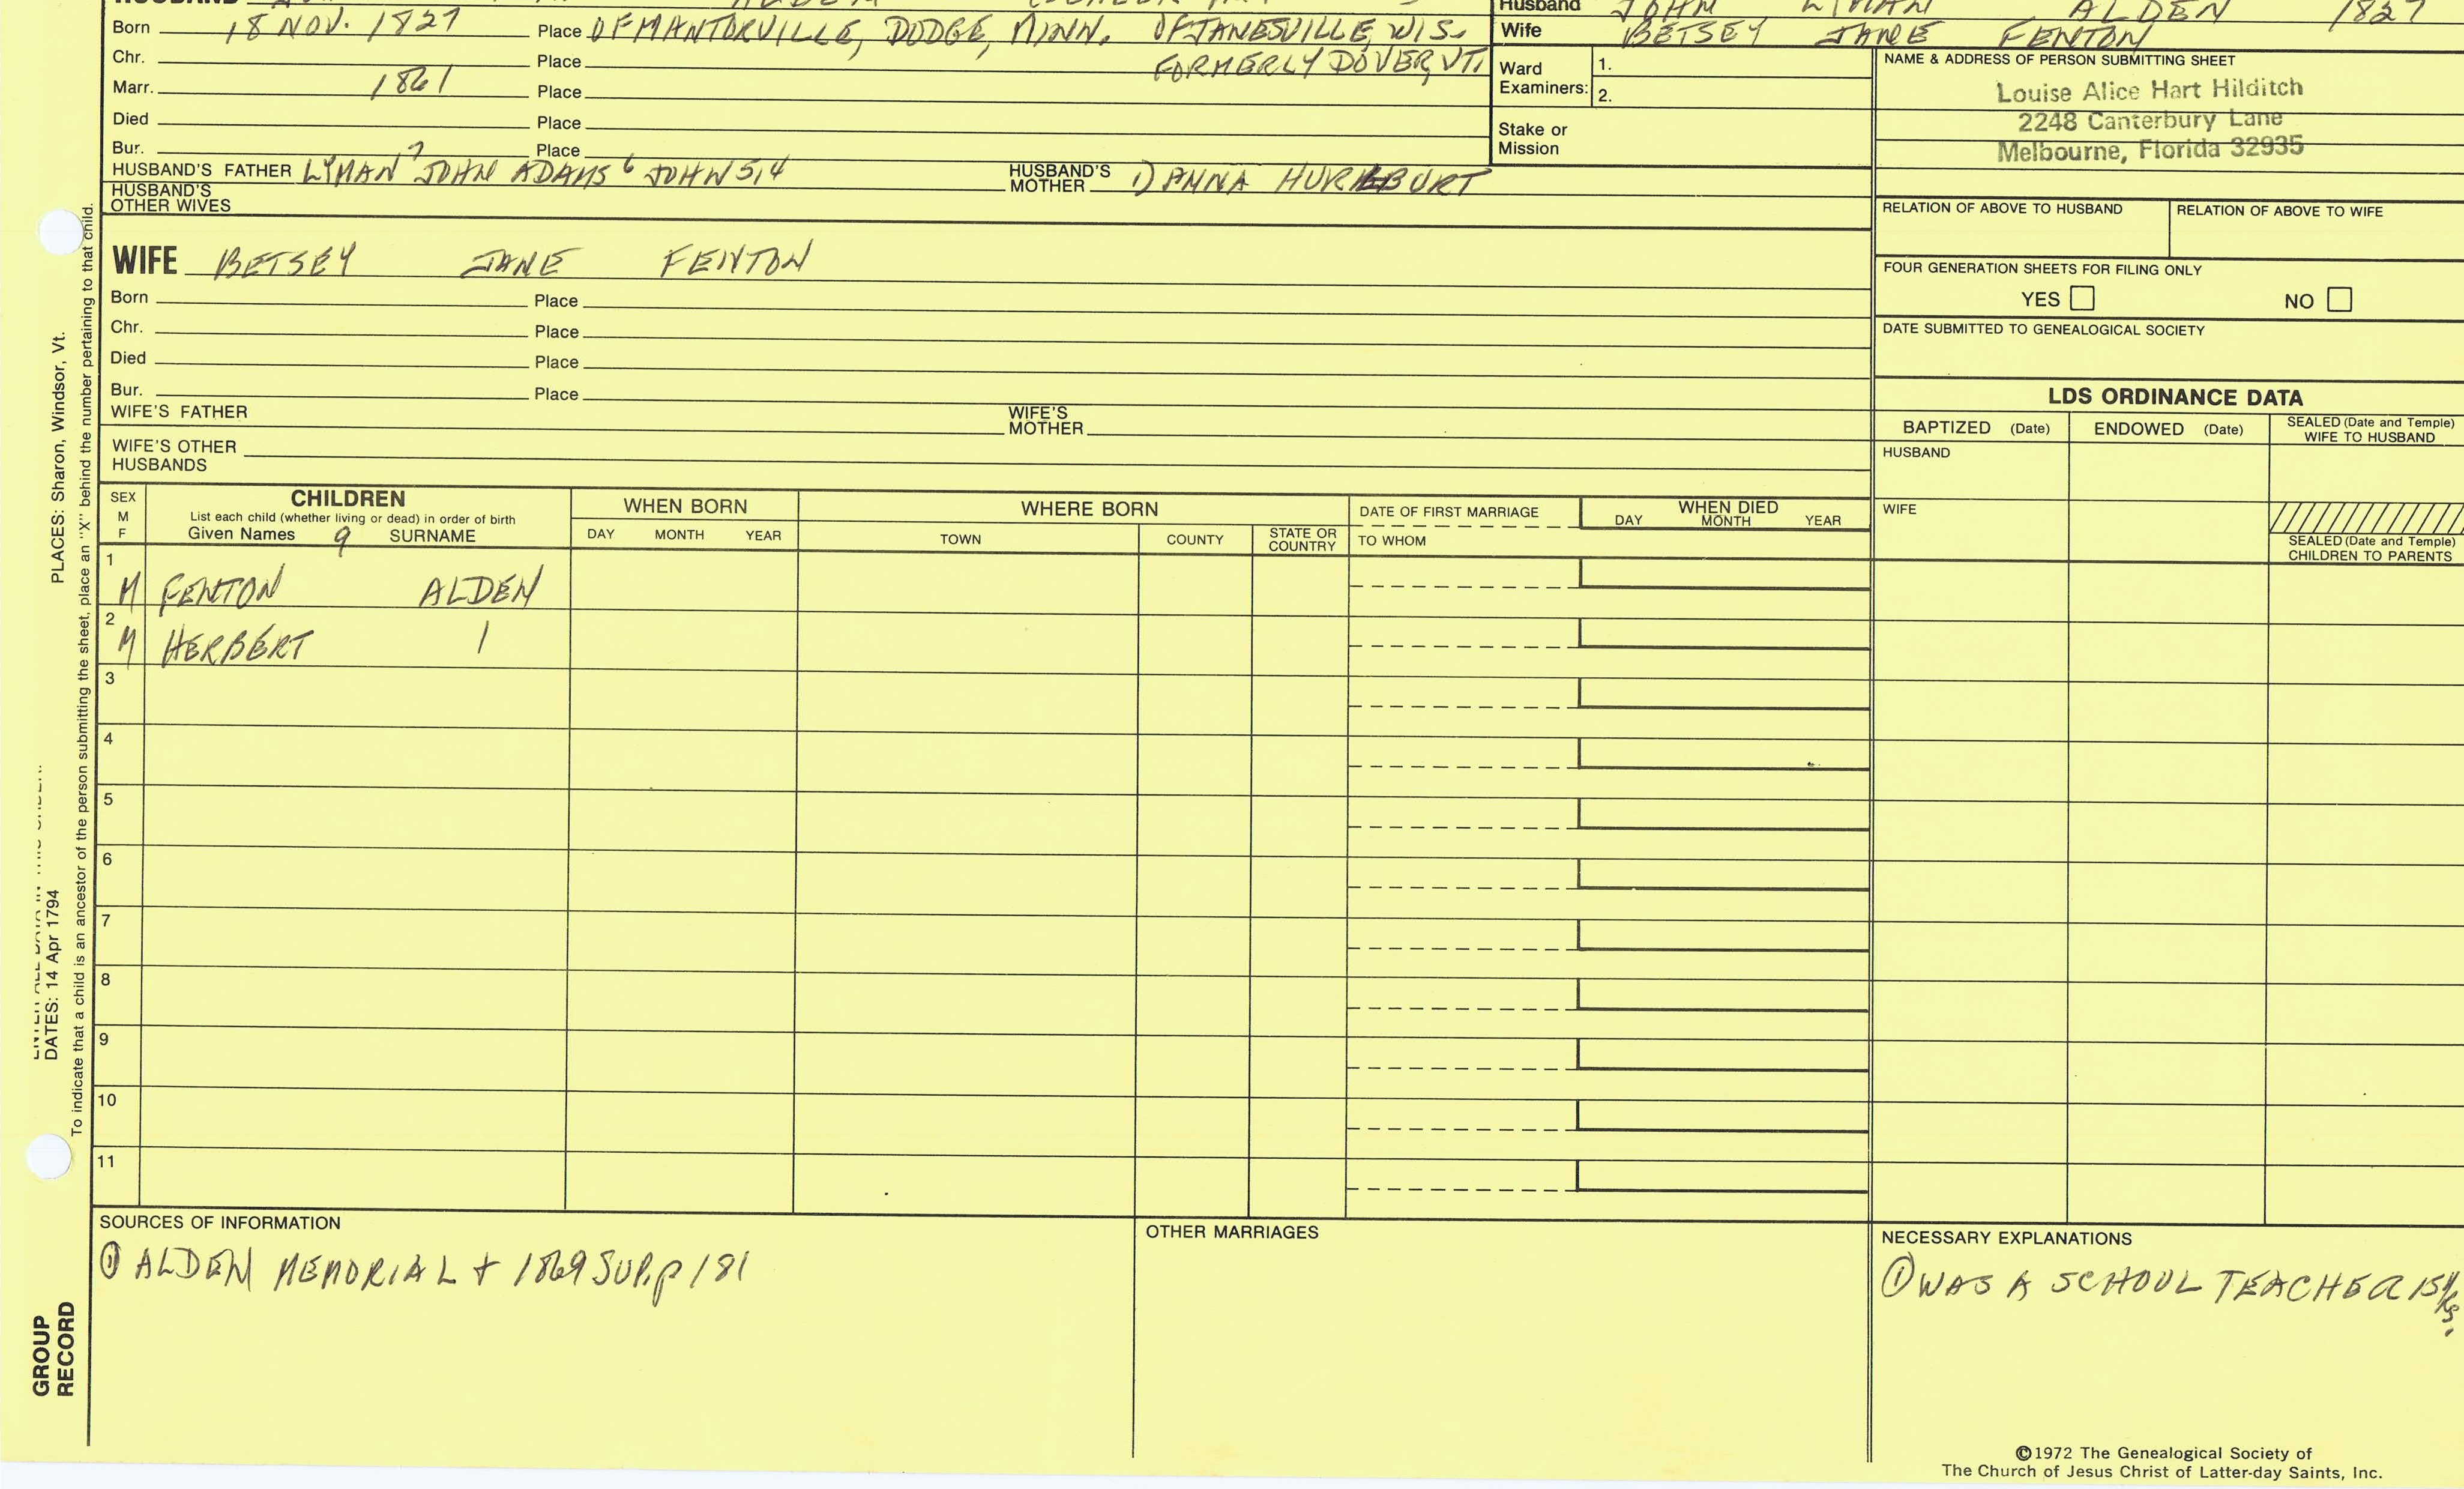 HUSBAND
Born 18 NOV. 1827 Place OF MANTORVILLE, DODGE, MINN. OF JANESVILLE, WIS.
Chr. Place FORMERLY DOVER, VT.
Marr. 1861 Place
Died Place
Bur. Place
HUSBAND'S FATHER LYMAN 7 JOHN ADAMS 6 JOHN 5,4 HUSBAND'S MOTHER 1) ANNA HURLBURT
HUSBAND'S OTHER WIVES
Husband JOHN LYMAN ALDEN 1827
Wife BETSEY JANE FENTON
Ward Examiners: 1.
2.
Stake or Mission
NAME & ADDRESS OF PERSON SUBMITTING SHEET
Louise Alice Hart Hilditch
2248 Canterbury Lane
Melbourne, Florida 32935
RELATION OF ABOVE TO HUSBAND RELATION OF ABOVE TO WIFE
FOUR GENERATION SHEETS FOR FILING ONLY
YES NO
DATE SUBMITTED TO GENEALOGICAL SOCIETY
WIFE BETSEY JANE FENTON
Born Place
Chr. Place
Died Place
Bur. Place
WIFE'S FATHER WIFE'S MOTHER
WIFE'S OTHER HUSBANDS
LDS ORDINANCE DATA
BAPTIZED (Date) ENDOWED (Date) SEALED (Date and Temple) WIFE TO HUSBAND
HUSBAND
WIFE
SEALED (Date and Temple) CHILDREN TO PARENTS
SEX M F
CHILDREN
List each child (whether living or dead) in order of birth
Given Names 9 SURNAME
WHEN BORN
DAY MONTH YEAR
WHERE BORN
TOWN COUNTY STATE OR COUNTRY
DATE OF FIRST MARRIAGE
TO WHOM
WHEN DIED
DAY MONTH YEAR
1 M FENTON ALDEN
2 M HERBERT 1
3
4
5
6
7
8
9
10
11
SOURCES OF INFORMATION
① ALDEN MEMORIAL + 1869 SUP. p 181
OTHER MARRIAGES
NECESSARY EXPLANATIONS
① WAS A SCHOOL TEACHER 15 YRS.
©1972 The Genealogical Society of
The Church of Jesus Christ of Latter-day Saints, Inc.
PLACES: Sharon, Windsor, Vt.
DATES: 14 Apr 1794
To indicate that a child is an ancestor of the person submitting the sheet, place an "X" behind the number pertaining to that child.
GROUP
RECORD